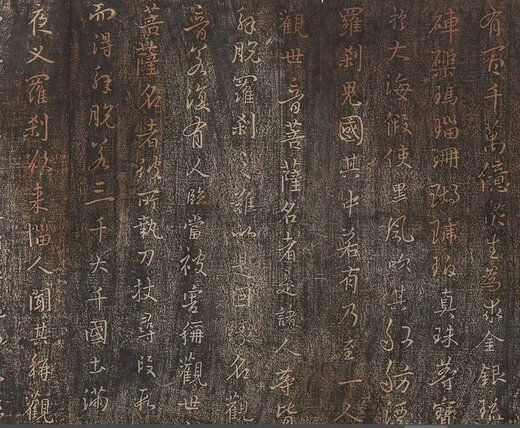 有百千萬億眾生為求金銀琉
硨磲瑪瑙珊瑚琥珀真珠等寶
於大海假使黑風吹其船舫漂
羅剎鬼國其中若有乃至一人
觀世音菩薩名者是諸人等皆
解脫羅剎之難以是因緣名觀
音若復有人臨當被害稱觀世
菩薩名者彼所執刀杖尋段段
而得解脫若三千大千國土滿
夜叉羅剎欲來惱人聞其稱觀